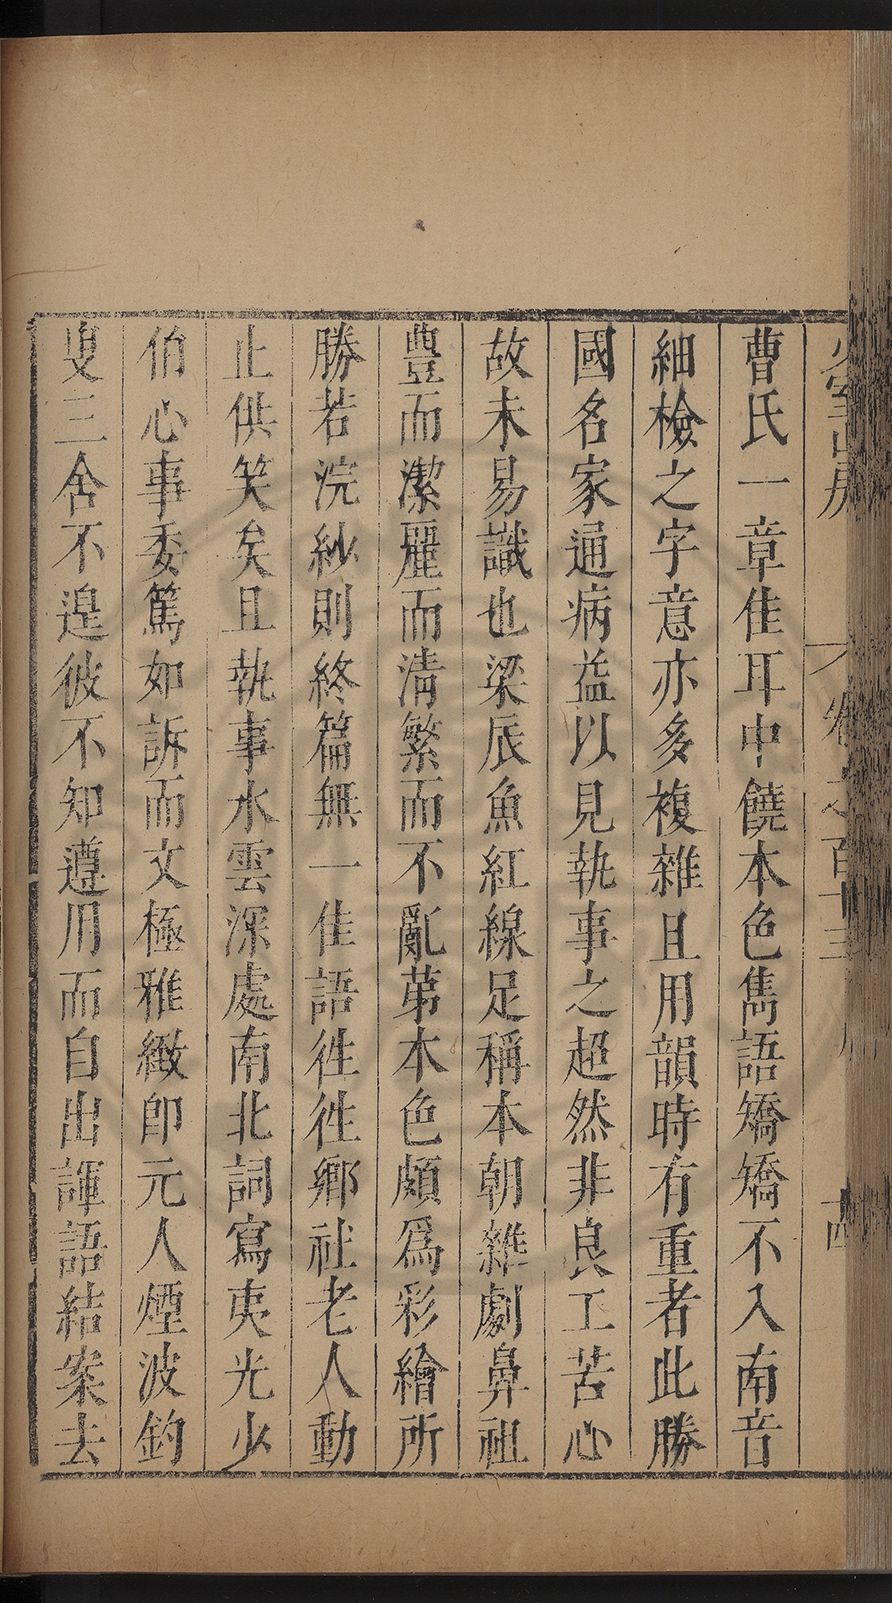 少室山房 卷之百十三 十四
曹氏一章佳耳中饒本色雋語矯矯不入南音
細檢之字意亦多複雜且用韻時有重者此勝
國名家通病益以見執事之超然非良工苦心
故未易識也梁辰魚紅線足稱本朝雜劇鼻祖
豊而潔麗而淸繁而不亂苐本色頗爲彩繪所
勝若浣紗則終篇無一佳語徃徃鄉社老人動
止供笑矣且執事水雲深處南北詞寫夷光少
伯心事委篤如訴而文極雅緻卽元人煙波釣
叟三舍不遑彼不知遵用而自出諢語結案去